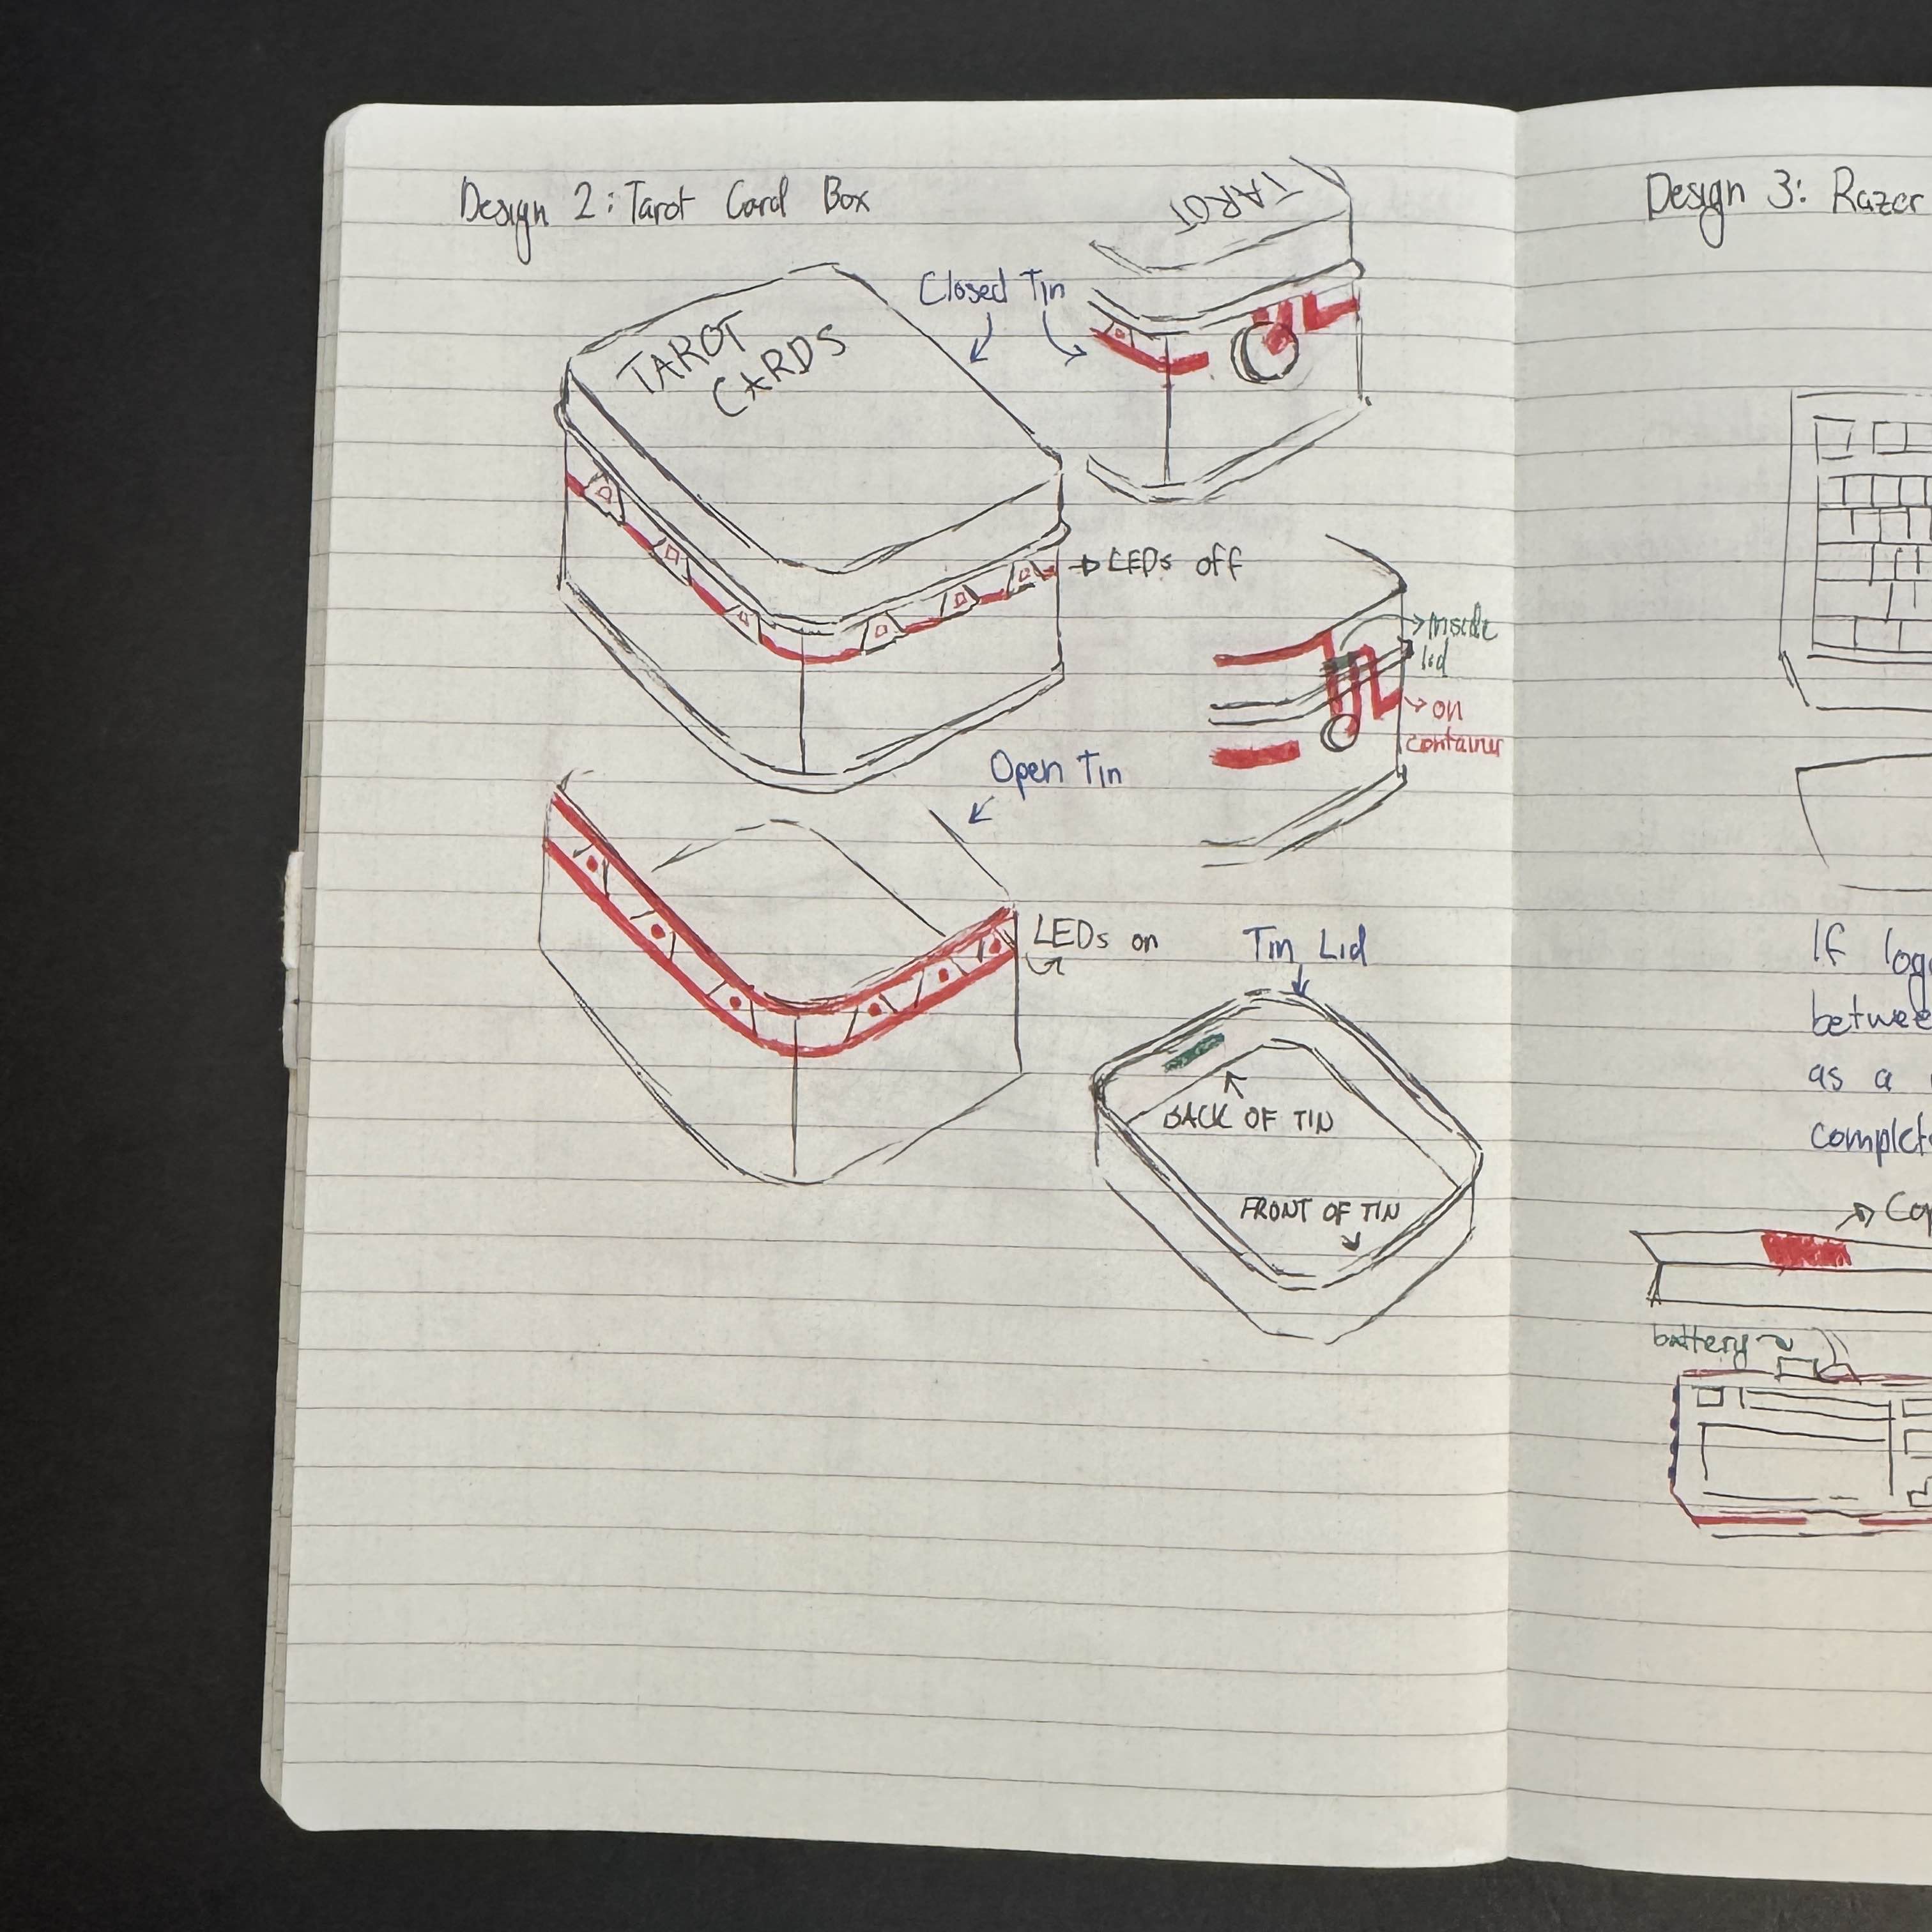 Design 2: Tarot Card Box
TAROT
Closed Tin
TAROT
CARDS
LEDs off
inside
lid
on
container
Open Tin
LEDs on
Tin Lid
BACK OF TIN
FRONT OF TIN
Design 3: Razer
If
as a
battery